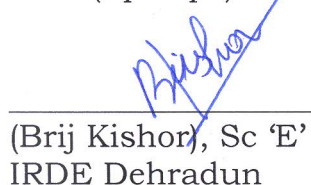 (Brij Kishor), Sc ‘E’
IRDE Dehradun